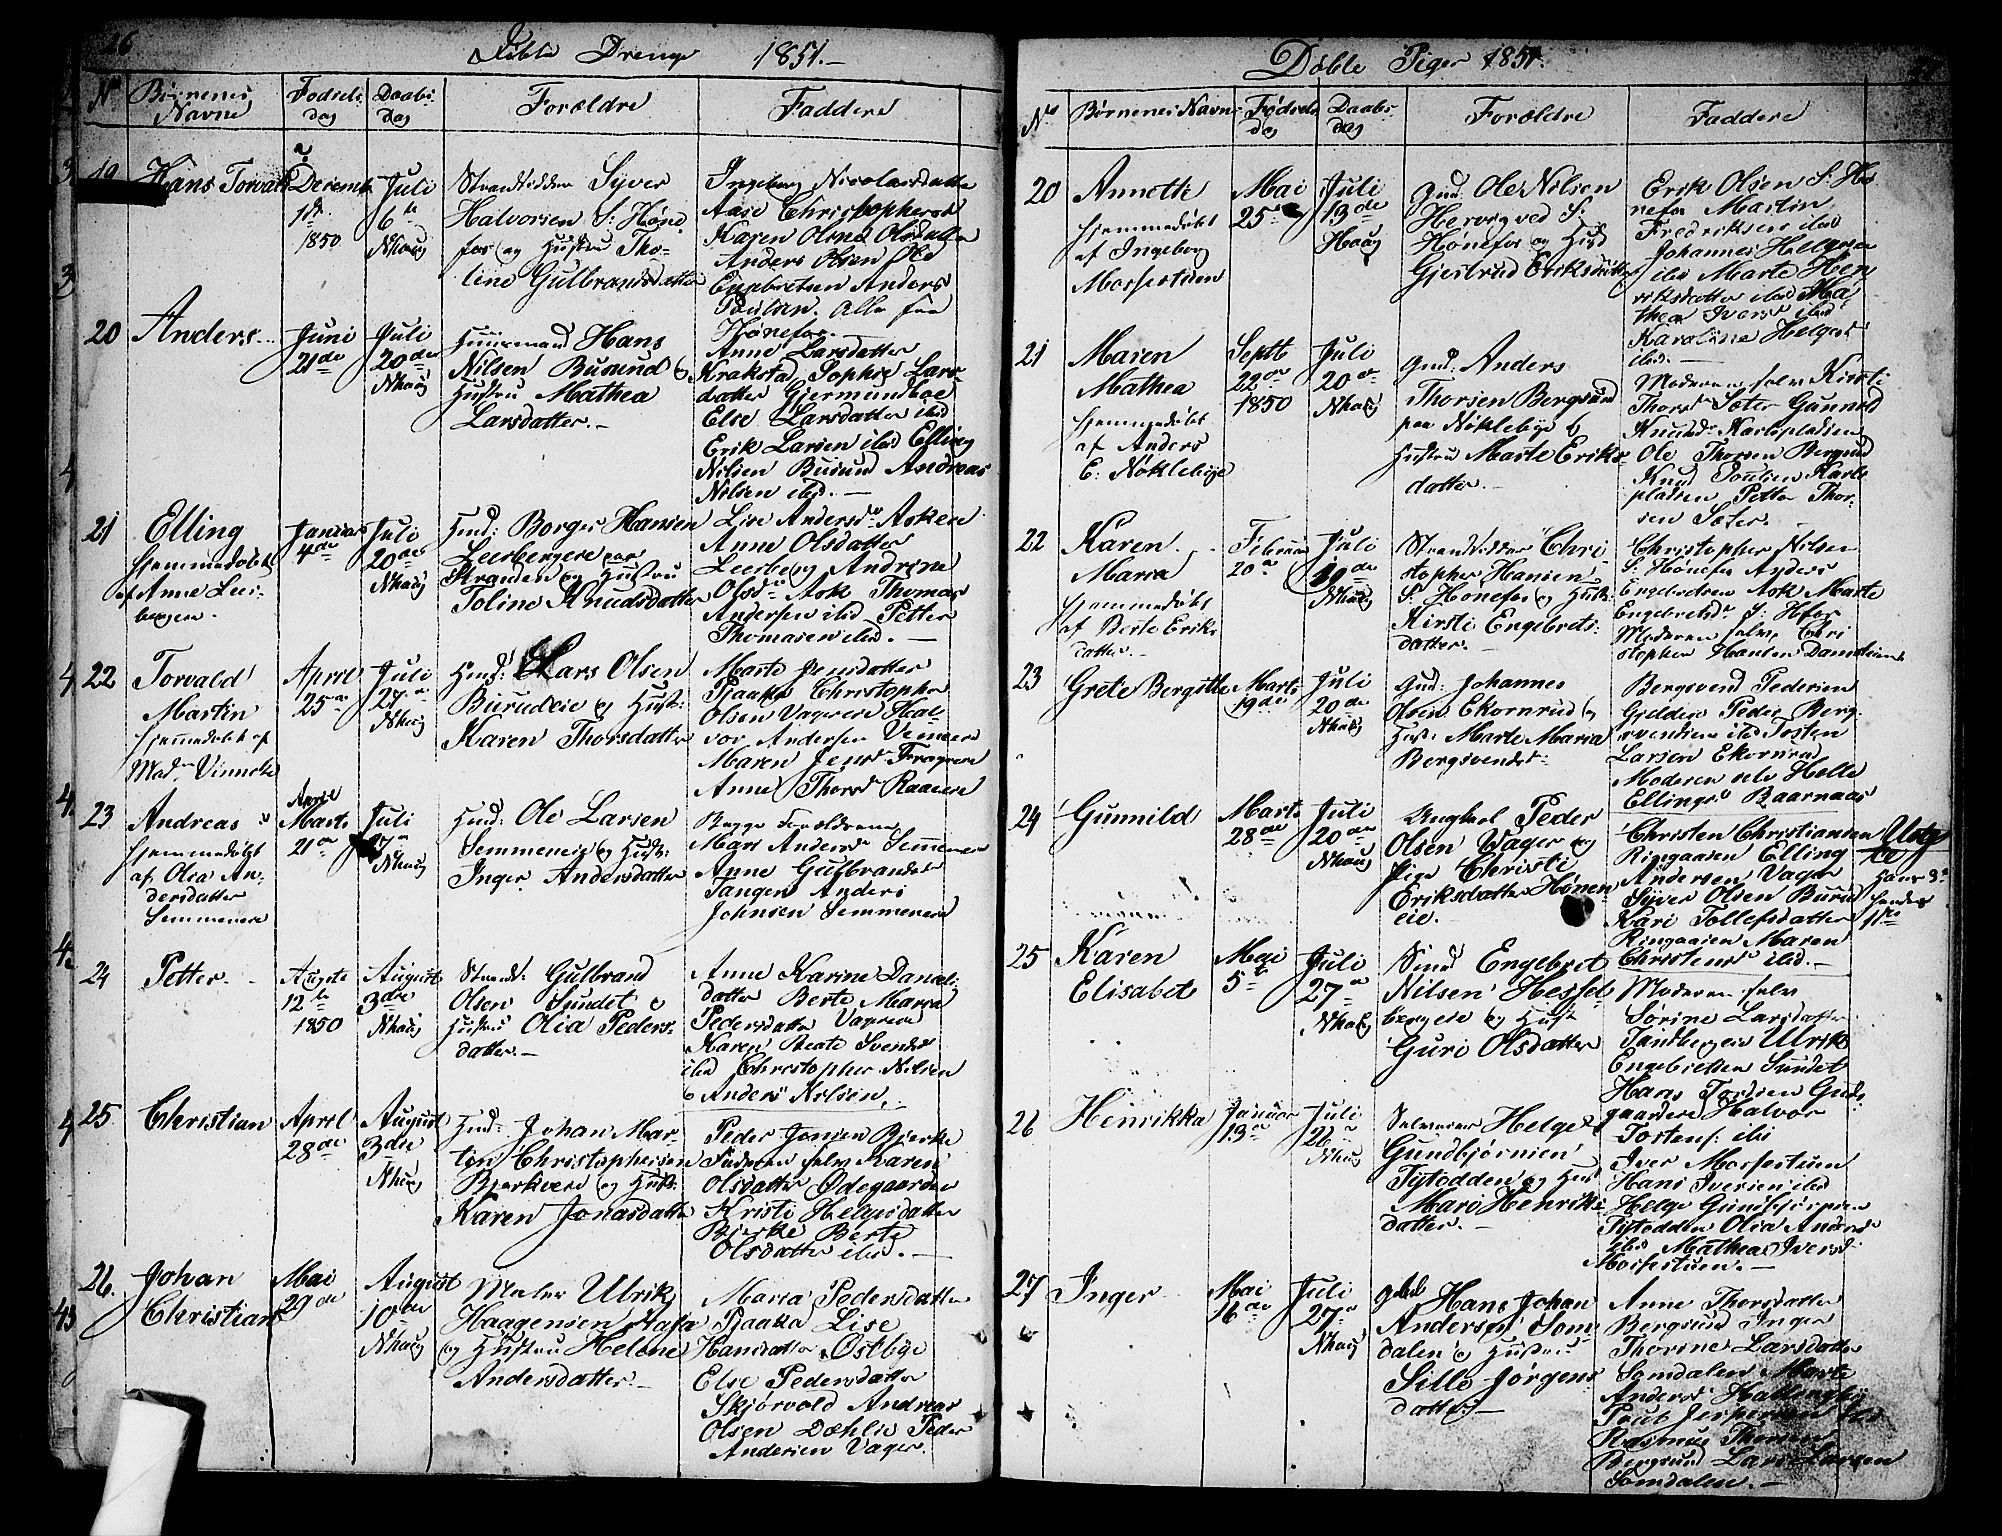 26
Døbte Drenge 1851.-
No
Børnenes Navne
Fødsels dag
Daabs dag
Forældre
Faddere
19
Hans Torvald
Decemb
1ste
1850
Juli
6te
Nhoug
Strandsidder Syver
Halvorsen S: Høne
fos og Hustru Tho-
line Gulbrandsdatter
Ingeborg Nicolaisdatter
Aase Christophersd
Karen Olsdatter
Anders Olsen Ole
Engebretsen Anders
Poulsen. Alle fra
Hønefos.-
20
Anders
Juni
21de
Juli
20de
Nhoug
Huusmand Hans
Nilsen Busund og
Hustru Mathea
Larsdatter.-
Anne Larsdatter
Krakstad, Sophie Lars-
datter Gjermundboe
Else Larsdatter ibid
Erik Larsen ibid Elling
Nilsen Busund Andreas
Nilsen ibid.-
21
Elling
hjemmedøbt
af Anne Leer-
bergen.
Januar
4de
Juli
20de
Nhoug
Huusd: Borger Hansen
Leerbergeie
og Hustru
Toline Knudsdatter
Lise Andersd: Askeie
Anne Olsdatter
Leerberg Andrine
Olsd: Ask Thomas
Andersen ibid Petter
Thomasen ibid.-
22
Torvald
Martin
hjemmedøbt af
Mad. Vinneke
April
25de
Juli
27de
Nhoug
Huusd: Lars Olsen
Burudeie og Hust:
Karen Thorsdatter
Marte Jensdatter
Tjaaka Christopher
Olsen Vagereie Hal-
vor Andersen Veimeie
Maren Jensd
Anne Thorsd
23
Andreas
hjemmedøbt
af Olea An-
dersdatter
Semmeneie
April
Marts
21de
Juli
Nhoug
Huusd: Ole Larsen
Semmeneie og Hust:
Inger Andersdatter
Begge Forældrene
Mari Andersd: Semmen
Anne Gulbrandsd
Tangen Anders
Johnsen Semmeneie
24
Petter
Augste
12te
1850
August
3die
Nhoug
Strands: Gulbrand
Olsen Sundet og
Hustru Olia Peders-
datter.-
Anne Karine Daniels-
datter Berte Maria
Pedersdatter Vagereie
Karen Beate Svends
ibid Christopher Nilsen
og Anders Nilsen.
25
Christian
April
28de
August
3die
Nhoug
Huusd: Johan Mar-
tin Christophersen
Bjerkeeie og Hust:
Karen Jonasdatter
Peder Jonsen Bjerke
Faderen selv Karen
Olsdatter Ødegaarden
Kristi Helgesdatter
Bjerke Berte
Olsdatter ibid.-
26.
Johan
Christian
Mai
29de
August
10de
Nhoug
Maler Ulrik
Haagensen
og Hustru Helene
Andersdatter.-
Maria Pedersdatter
Tjaaka Lise
Hansdatter Østbye
Else Pedersdatter
Skjørvold Andreas
Olsen Dæhlie Peder
Andersen Vager.
Døbte Piger 1851.
No
Børnenes Navne
Fødsels dag
Daabs dag
Forældre
Faddere
20
Annethe
hjemmedøbt
af Ingeborg
Mosfestuen
Mai
25
Juli
13de
Houg
Gmd: Ole Nilsen
Hervig ved S:
Hønefos og Hust
Gjertrud Eriksdatter
Erik Olsen S: Hø-
nefos Martin
Fredriksen ibid
Johannes Helgesen
ibid Marte Hen
riksdatter ibid Ma
thea Iversd ibid
Karoline Helgesd
ibid.-
21
Maren
Mathea
hjemmedøbt
af Anders
E. Nøklebye
Septb
22de
1850
Juli
20de
Nhoug
Gmd: Anders
Thorsen Bergsund
paa Nøklebye og
Hustru Marte Eriks-
datter.
Moderen selv Kirsti
Thorsd Sæter Gunnild
Knudsd Karlspladsen
Ole Thorsen Bergsund
Knud Poulsen Karls
pladsen Petter Thor-
sen Sæter.
22
Karen
Maria
hjemmedøbt
af Berte Eriks-
datter.-
Februar
20de
Juli
20de
Nhoug
Strandsidder Chri
stopher Hansen
S: Hønefos og Hust:
Kirsti Engebrets-
datter.-
Christopher Nilsen
S: Hønefos Anders
Engebretsen Ask Marte
Engebretsd: S: Hfos
Moderen selv, Chri
stopher Hansen
23
Grete Bergitte
Marts
19de
Juli
20de
Nhoug
Gmd: Johannes
Olsen Ekornrud og
Hust: Marte Maria
Bergsvendsd:
Bergsvend Pedersen
Gjelden Peder Berg-
svendsen ibid Tosten
Larsen Ekornrud
Moderen selv Helle
Ellingsd Baarnaas
24
Gunnild
Marts
28de
Juli
20de
Nhoug
Ungkarl Peder
Olsen Vager og
Pige Christi
Eriksdatter Hønen
eie.
Christen Christiansen
Ringaasen Elling
Andersen Vager
Syver Olsen Burud
Kari Tollefsdatter
Ringaasen Maren
Christensd ibid.-
Uægte
Hans 3die
hendes
1ste
25
Karen
Elisabet
Mai
5te
Juli
27de
Nhoug
Smed Engebret
Nilsen Hessel-
bergeie og Hust
Guri Olsdatter
Moderen selv
Sørine Larsdatter
Tandbergeie Ulrik
Engebretsen Sundet
Hans Torstensen
Halvor
Tostens: ibid
26
Henrikka
Januar
13de
Juli
26
Nhoug
Selveier Helge
Gundbjørnsen
Tytodden og Hust
Mari Henriks
datter.-
Iver Mosfestuen
Hans Iversen ibid
Helge Gundbjørnsen
Tytodden Olia Andersd
ibid Mathea Iversd
Mosfestuen.-
27
Inger
Mai
16de
Juli
27de
Nhoug
Gmd Hans Johan
Andersen Som
dalen og Hustru
Sille Jørgens
datter.-
Anne Thorsdatter
Bergsund Inger
Thorine Larsdatter
Somdalen Marte
Andersd Hallingby
Poul Jespersen ibid
Rasmus Thorsen
Bergsund Lars Larsen
Somdalen.-